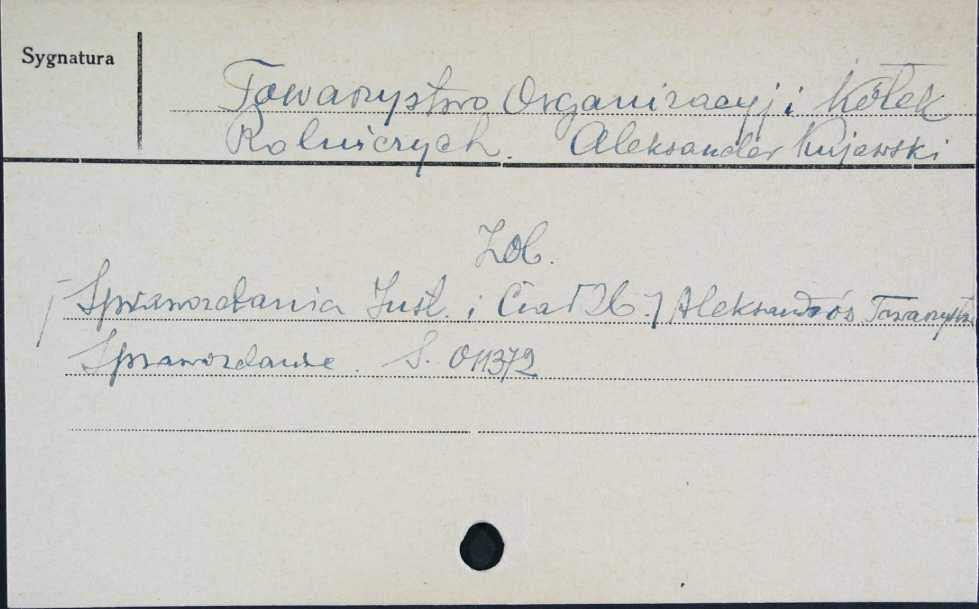 Sygnatura
Towarzystwo Organizacyj i Kółek
Rolniczych. Aleksander Kujawski
Zob.
Sprawozdania Inst. i Ciał Zb. / Aleksandrów Towarzystw
Sprawozdanie. S. 011372